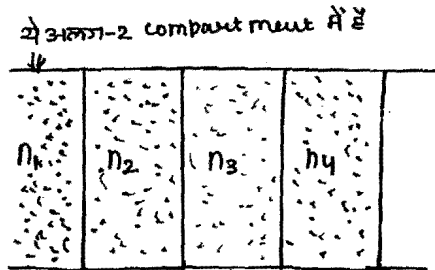 ये अलग-2 compartment में है
n₁ n₂ n₃ n₄